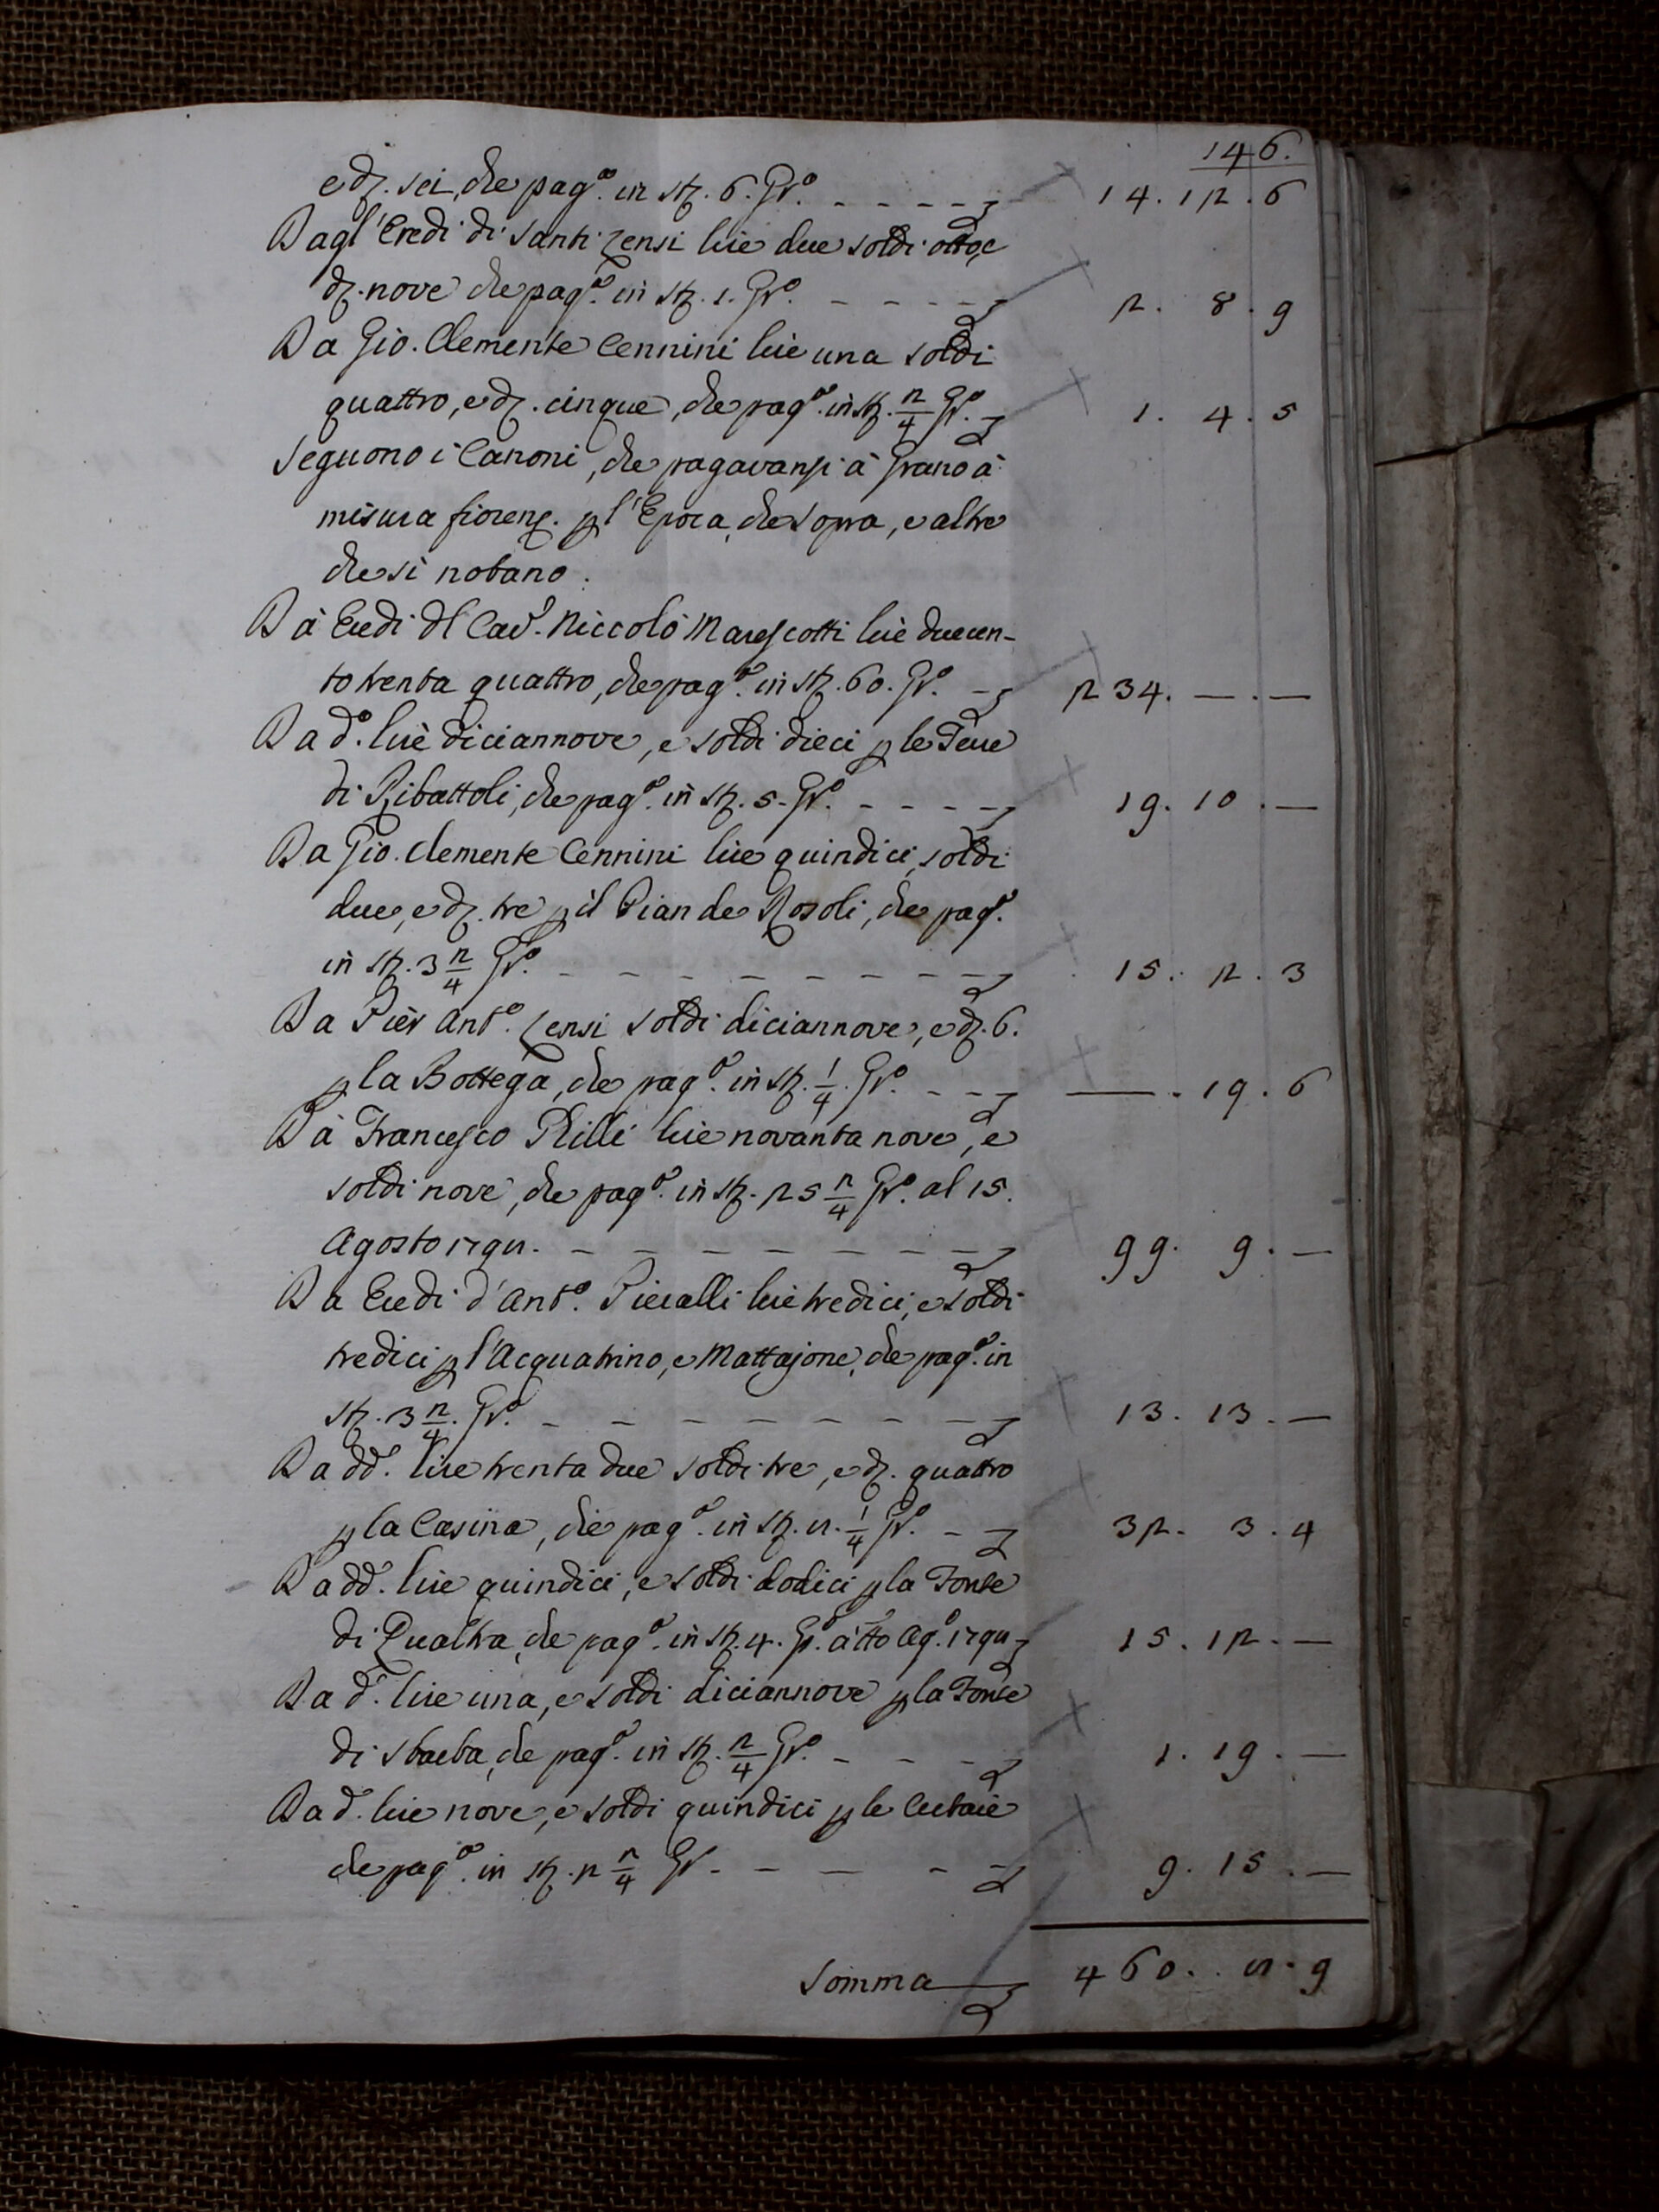 146.
e dʒ. sei, che pag.º in stʒ. 6. Gr.º - - - - 14. 12. 6
Dagl'Eredi di Santi Zensi lire due soldi otto, e
dʒ. nove che pag.º in stʒ. 1. Gr.º - - - - 2. 8. 9
Da Gio. Clemente Cennini lire una soldi
quattro, e dʒ. cinque, che pag.º in stʒ. 2/4 Gr.º - 1. 4. 5
Seguono i Canoni, che pagavansi à Grano à
misura fiorenʒ. p l'Epoca, che sopra, e altre
che si notano.
Dà Eredi dl Cav.r Niccolò Marescotti lire duecen-
to trenta quattro, che pag.º in stʒ. 60. Gr.º - 234. — . —
Da d.º lire diciannove, e soldi dieci p le Terre
di Ribattoli, che pag.º in stʒ. 5. Gr.º - - - - 19. 10. —
Da Gio. Clemente Cennini lire quindici, soldi
due, e dʒ. tre p il Pian de Rosoli, che pag.º
in stʒ. 3 2/4 Gr.º - - - - - - - - - 15. 2. 3
Da Pièr Ant.º Zensi soldi diciannove, e dʒ. 6.
p la Bottega, che pag.º in stʒ. 1/4. Gr.º - - - — . 19. 6
Dà Francesco Rilli lire novanta nove, e
soldi nove, che pag.º in stʒ. 25 2/4 Gr.º al 15.
Agosto 1791. - - - - - - - - 99. 9. —
Da Eredi d'Ant.º Pieralli lire tredici, e soldi
tredici p l'Acquatrino, e Mattajone, che pag.º in
stʒ. 3 2/4. Gr.º - - - - - - - - 13. 13. —
Da dd.i lire trenta due soldi tre, e dʒ. quattro
p la Casina, che pag.º in stʒ. 8. 1/4 Gr.º - - 32. 3. 4
Da dd.i lire quindici, e soldi dodici p la Fonte
di Qualtra, che pag.º in stʒ. 4. Gr.º à tto Ag.º 1791 - 15. 12. —
Da d.i lire una, e soldi diciannove p la Fonte
di che pag.º in stʒ. 2/4 Gr.º - - - - 1. 19. —
Da d.i lire nove, e soldi quindici p le
che pag.º in stʒ. 2 2/4 Gr. - - - - - 9. 15. —
Somma 460. 11. 9